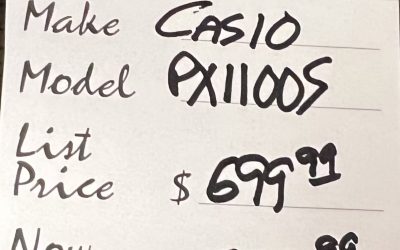 Make CASIO
Model PX1100S
List
Price $ 699 99
Now